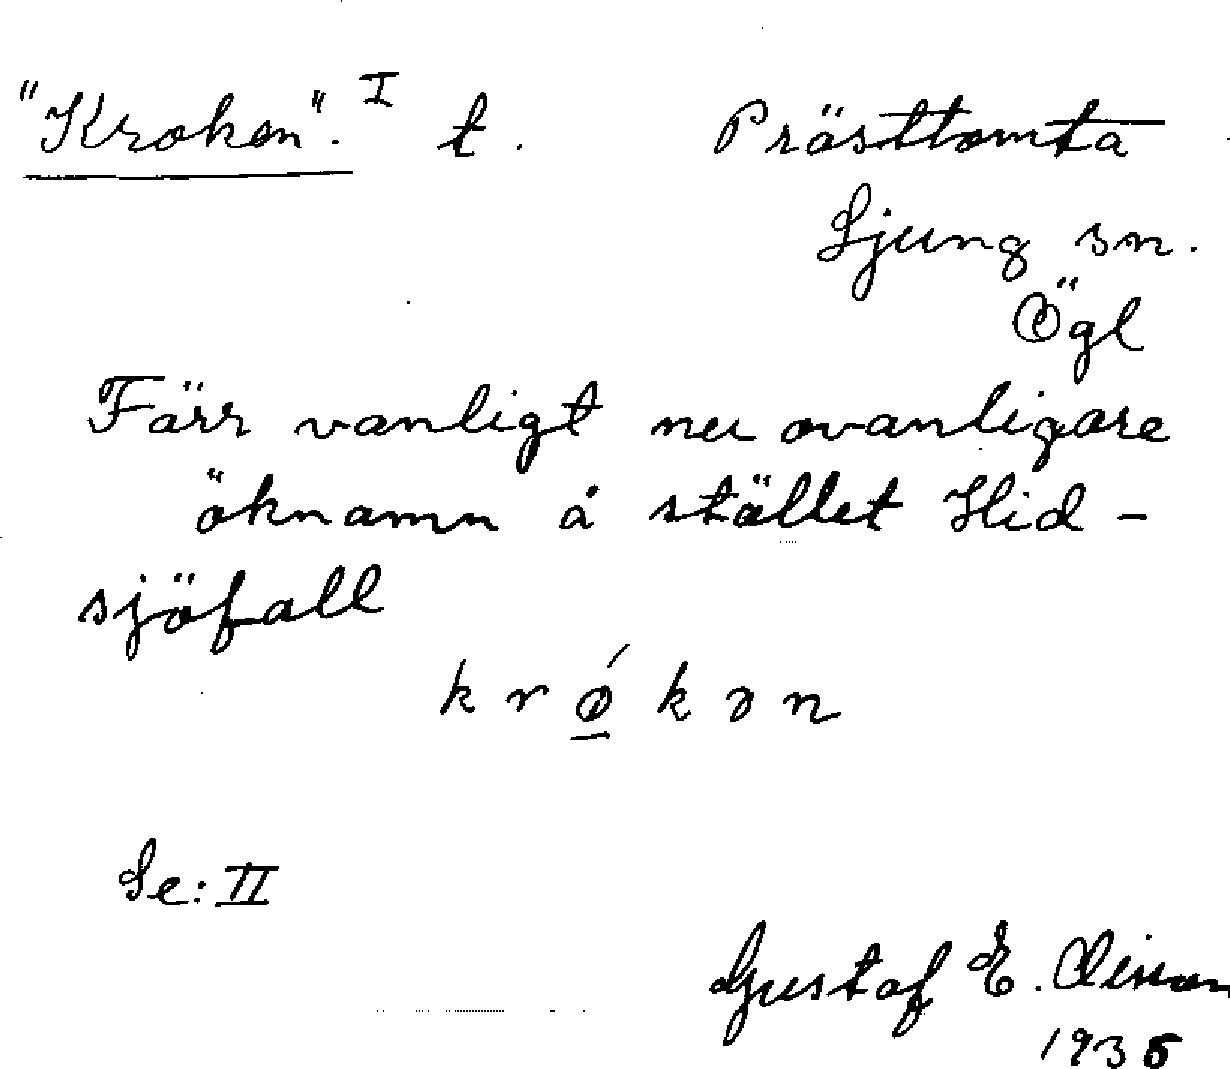 "Kroken". I t. Prästtomta
Ljung sn.
Ögl
Färr vanligt nu ovanligare
öknamn å stället Hid-
sjöfall
k r ó k ə n
Se: II
Gustaf E.
1935